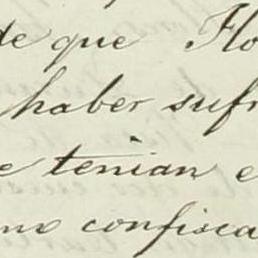 de que Flo
haber sufr
e tenian e
mo confisca